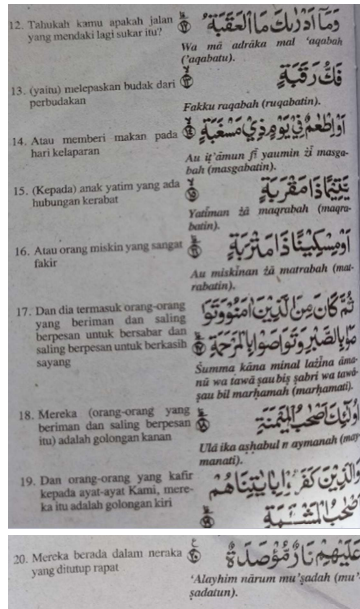 12. Tahukah kamu apakah jalan
yang mendaki lagi sukar itu?
وَمَآ أَدْرٰىكَ مَا الْعَقَبَةُ
Wa mā adrāka mal 'aqabah
('aqabatu).
13. (yaitu) melepaskan budak dari
perbudakan
فَكُّ رَقَبَةٍ
Fakku raqabah (ruqabatin).
14. Atau memberi makan pada
hari kelaparan
أَوْ إِطْعٰمٌ فِيْ يَوْمٍ ذِيْ مَسْغَبَةٍ
Au iṭ'āmun fī yaumin żī masga-
bah (masgabatin).
15. (Kepada) anak yatim yang ada
hubungan kerabat
يَتِيْمًا ذَا مَقْرَبَةٍ
Yatīman żā maqrabah (maqra-
batin).
16. Atau orang miskin yang sangat
fakir
أَوْ مِسْكِيْنًا ذَا مَتْرَبَةٍ
Au miskīnan żā matrabah (mat-
rabatin).
17. Dan dia termasuk orang-orang
yang beriman dan saling
berpesan untuk bersabar dan
saling berpesan untuk berkasih
sayang
ثُمَّ كَانَ مِنَ الَّذِيْنَ اٰمَنُوْا وَتَوَا
صَوْا بِالصَّبْرِ وَتَوَاصَوْا بِالْمَرْحَمَةِ
Ṡumma kāna minal lażīna āma-
nū wa tawā ṣau biṣ ṣabri wa tawā-
ṣau bil marhamah (marḥamati).
18. Mereka (orang-orang yang
beriman dan saling berpesan
itu) adalah golongan kanan
أُولٰٓئِكَ أَصْحٰبُ الْمَيْمَنَةِ
Ulā ika aṣḥabul n aymanah (may
manati).
19. Dan orang-orang yang kafir
kepada ayat-ayat Kami, mere-
ka itu adalah golongan kiri
وَالَّذِيْنَ كَفَرُوْا بِاٰيٰتِنَا هُمْ
أَصْحٰبُ الْمَشْـَٔمَةِ
20. Mereka berada dalam neraka
yang ditutup rapat
عَلَيْهِمْ نَارٌ مُّؤْصَدَةٌ
'Alayhim nārum mu'ṣadah (mu'
ṣadatun).